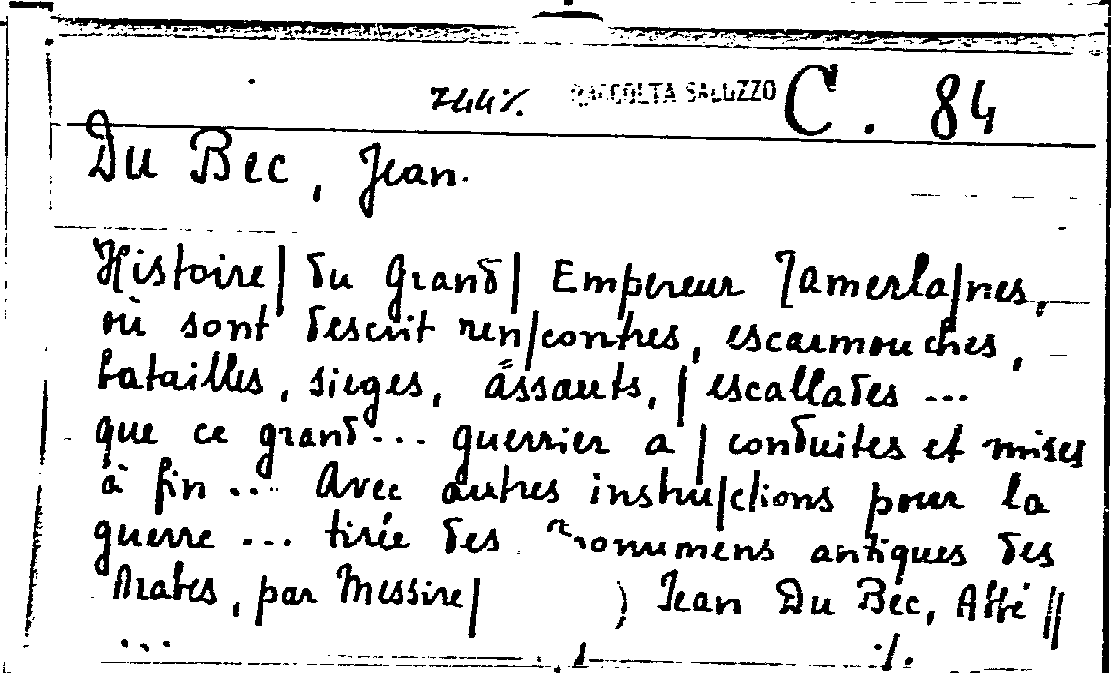 7441. RACCOLTA SALUZZO C. 84
Du Bec, Jean.
Histoire | du Grand | Empereur Tamerla|nes,
où sont descrit ren|contres, escarmouches,
batailles, sieges, assauts, | escallades ...
que ce grand ... guerrier a | conduites et mises
à fin ... Avec autres instru|ctions pour la
guerre ... tirée des monumens antiques des
Arabes, par Messire | Jean Du Bec, Abbé ||
... ./.